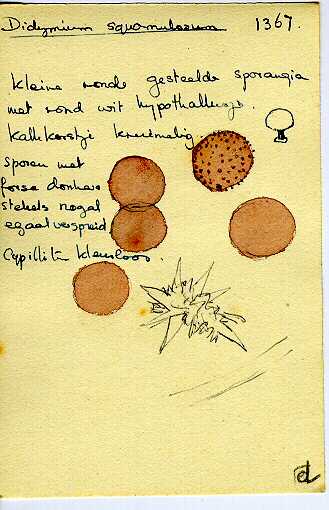 Didymium squamulosum 1367.
kleine ronde gesteelde sporangia
met rond wit hypothallusje.
kalkkorstje kruimelig.
sporen met
forse donkere
stekels nogal
egaal verspreid
Capillit. kleurloos.